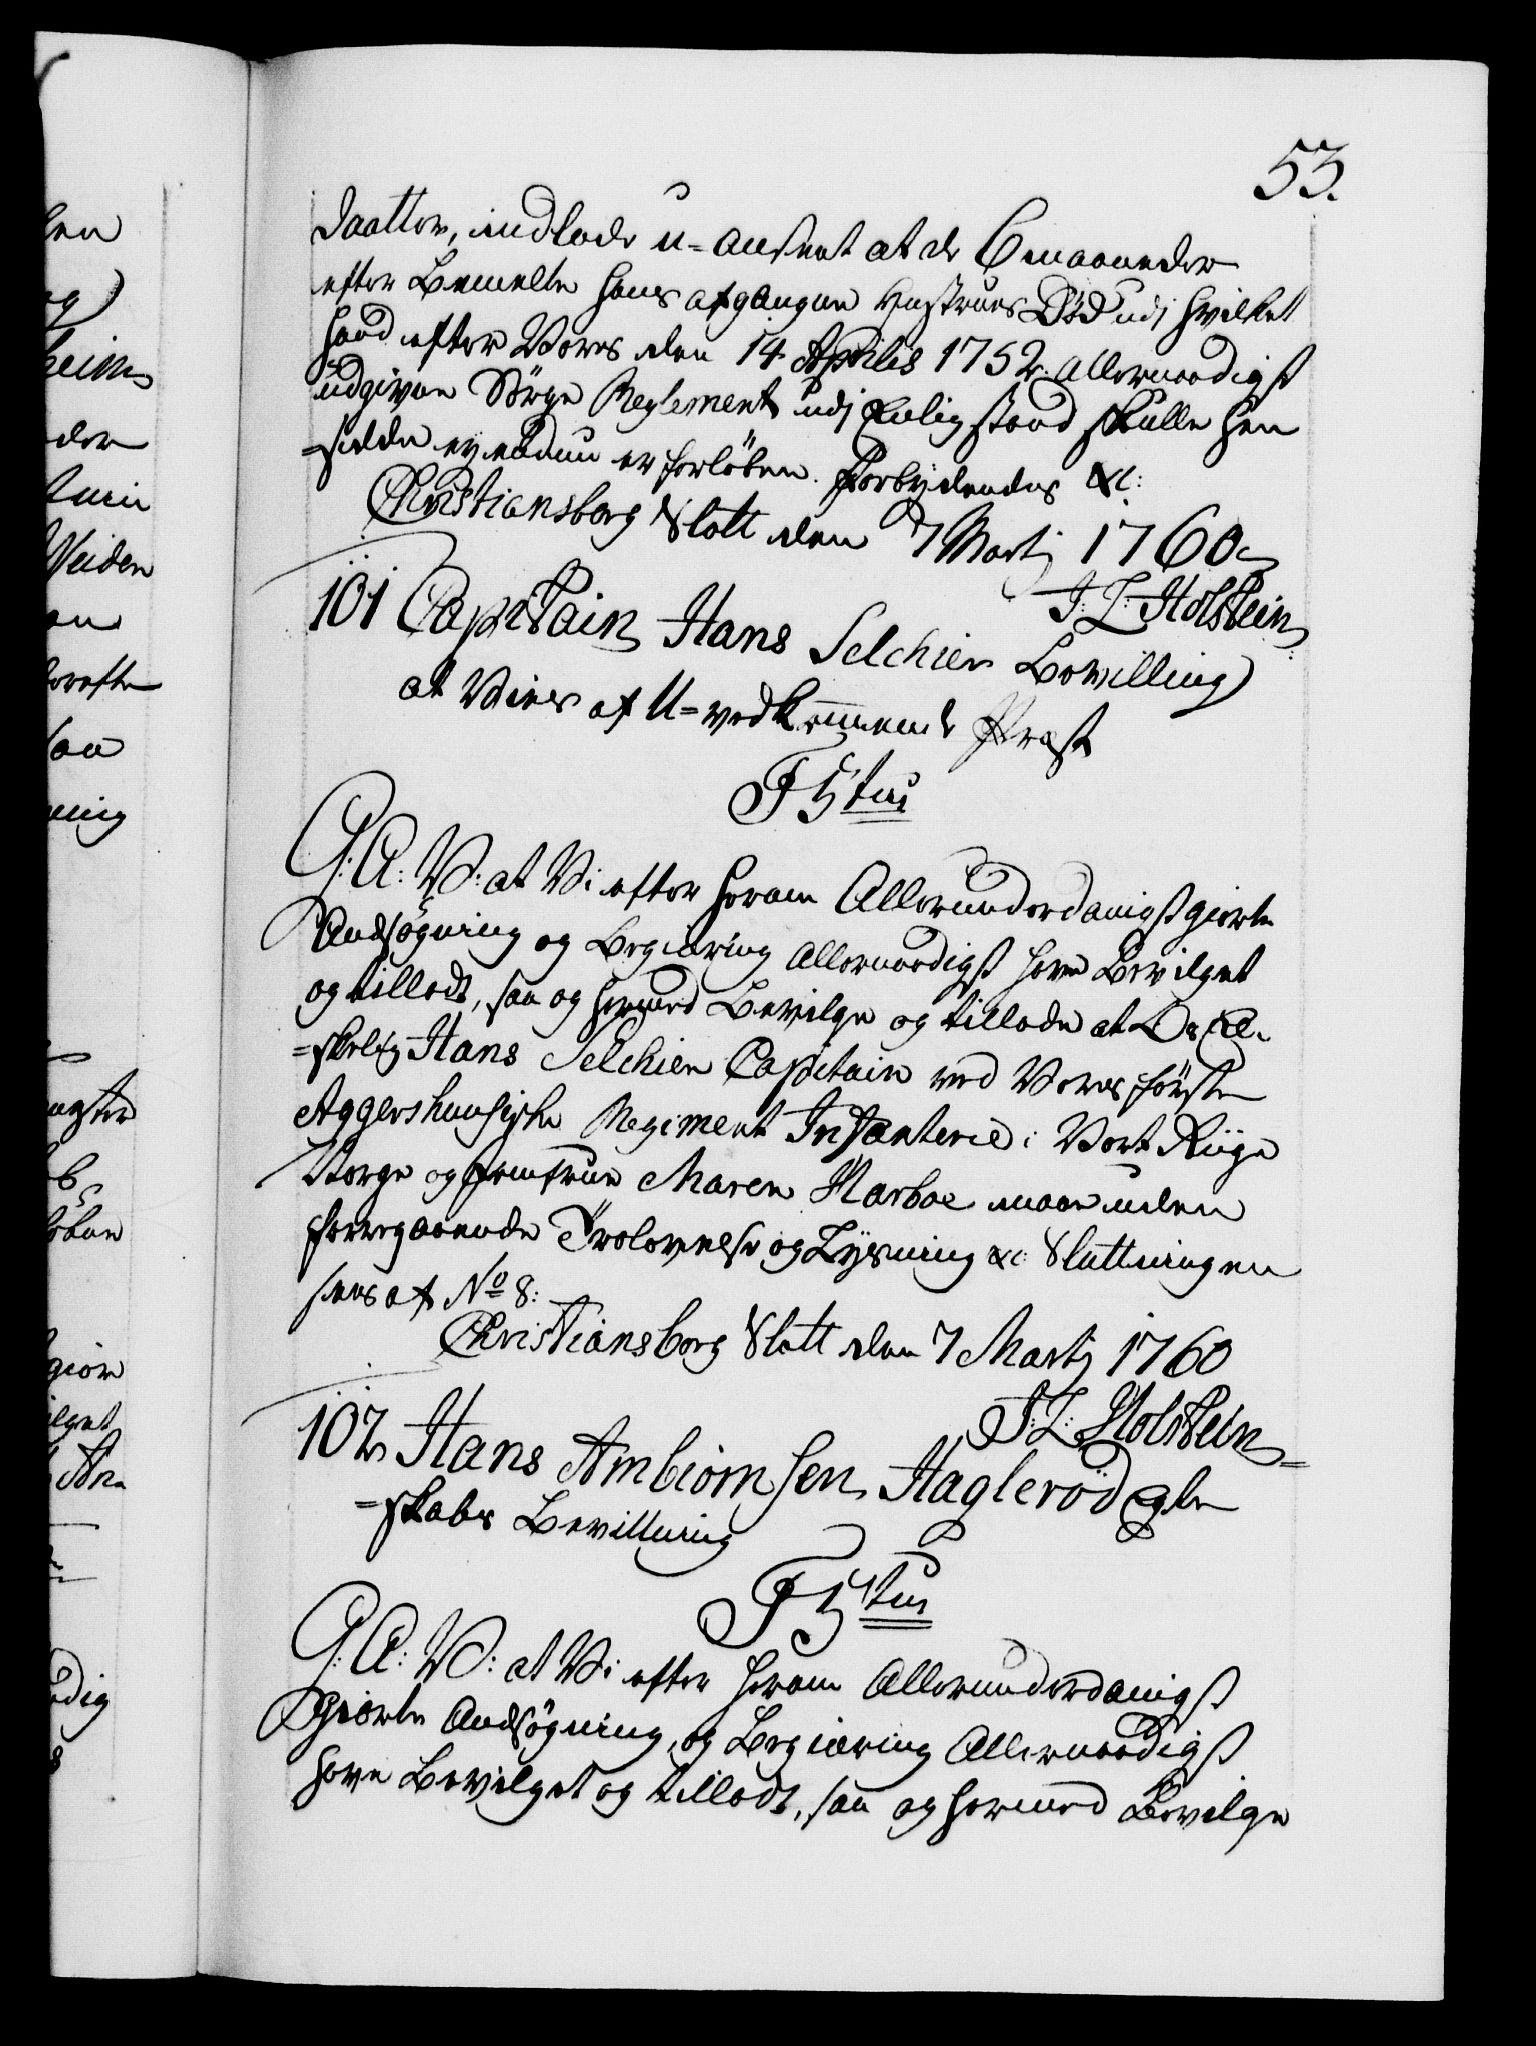 53.
Daatter, indlade u-anseet at de 6 maaneder
efter Bemelte hans afgangne Hustrues Død udj hvilket
hand efter Vores den 14 Aprilis 1752 allernaadigst
udgivne Sørge Reglement udj Enlig stand skulle hen
=sidde ey endnu er forløben. Forbydendes &c:
Christiansborg Slott den 7 Martj 1760
J: L: Holstein
101 Capitain Hans Selchier Bevilling
at Vies af U-vedkommende Præst
F 5tus
G: A: V: at Vi efter herom Allerunderdanigst giorte
Ansøgning og Begiæring Allernaadigst have Bevilget
og tilladt, saa og hermed Bevilge og tillade at Os El-
=skelig Hans Selchier Capitain ved Vores første
Aggershuusiske Regiment Infanterie i Vort Riige
Norge og Jomfrue Maren Marboe maae uden
foregaaende Trolovelse og Lysning &c: Sluttningen
sees af No 8:
Christiansborg Slott den 7 Martj 1760
J: L: Holstein
102 Hans Ambiørnsen Haglerød Egte
=skabs Bevillning
F 5tus
G: A: V: at Vi efter herom Allerunderdanigst
Giorte Ansøgning, og Begiæring Allernaadigst
have Bevilget og tilladt, saa og hermed Bevilge